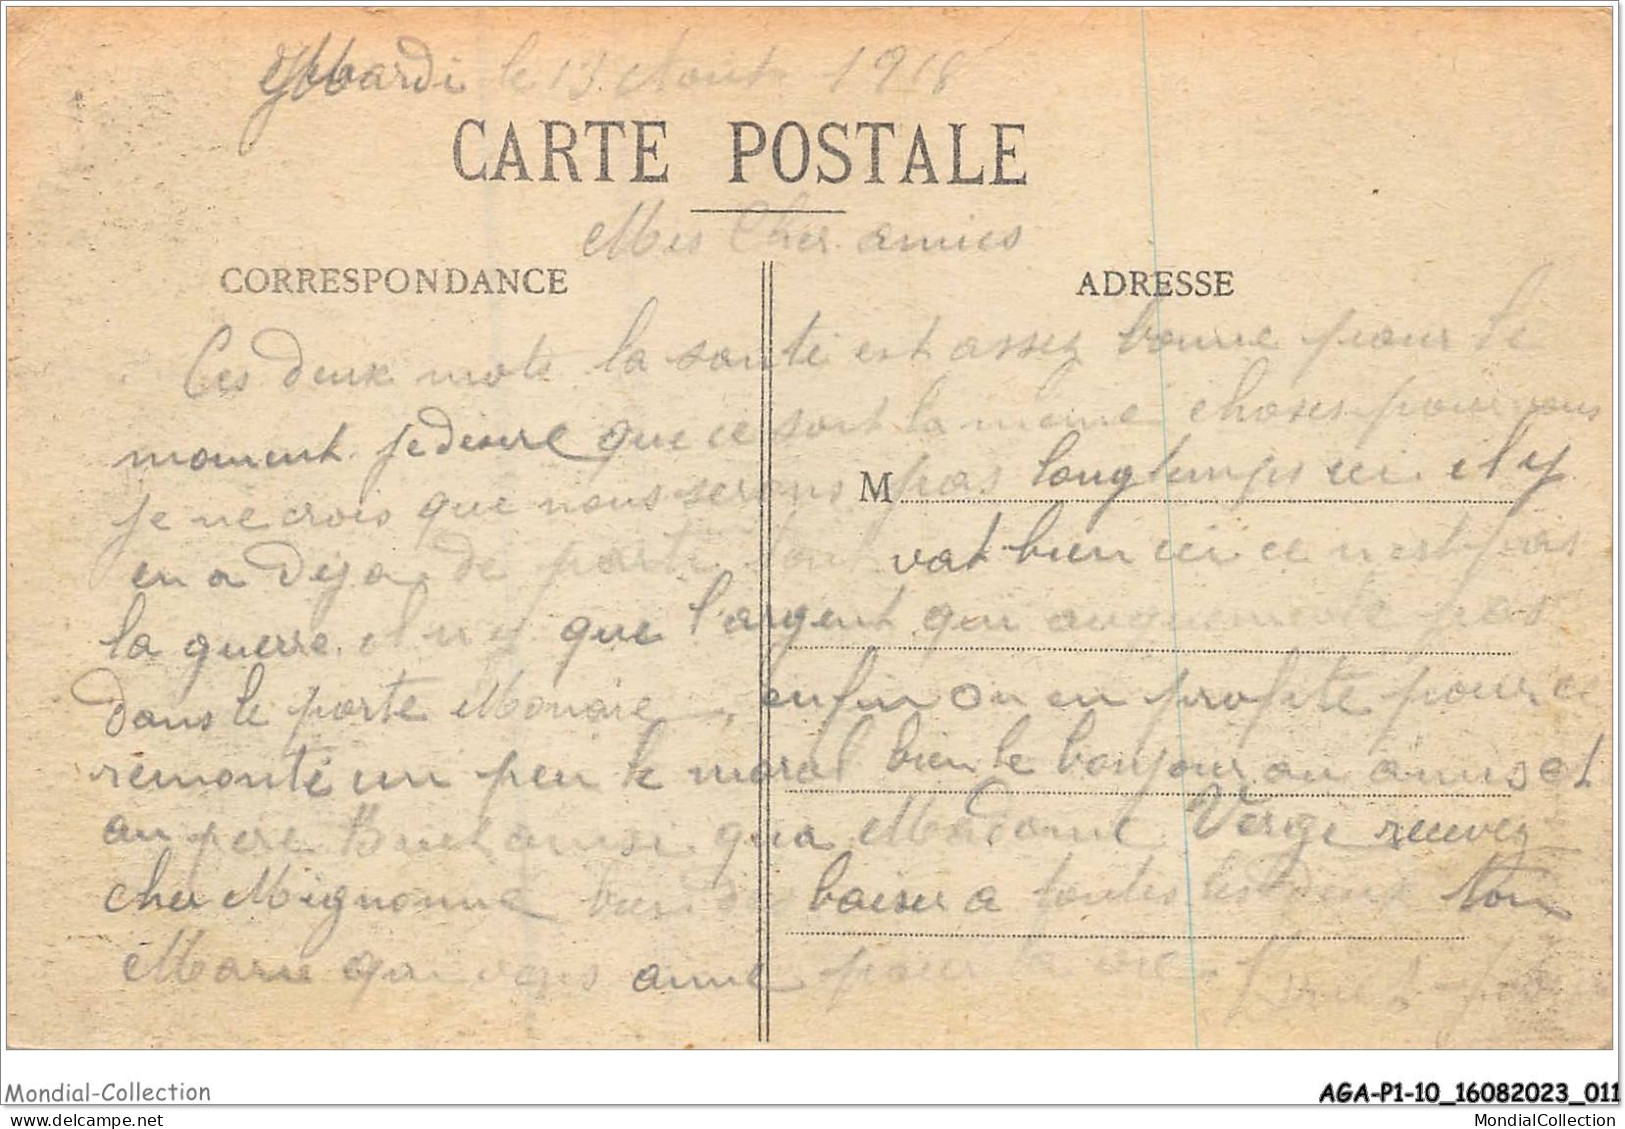 Mardi le 13 Aout 1918
CARTE POSTALE
Mes Cher amies
CORRESPONDANCE
ADRESSE
Ces deux mots la santé est assez bonne pour le
moment je desire que ce soit la même choses pour vous
je ne crois que nous serons pas longtemps ici il y
M
en a deja de parti tout vat bien ici ce n'est pas
la guerre il n'y que l'argent qui augmente pas
dans le porte Monaie enfin on en profite pour ce
remonté un peu le moral bien le bonjour au amis et
au père ainsi qua Madame Verge recevez
cher Mignonne baiser a toutes les deux ton
Marie qui vous aime pour la vie
Mondial-Collection
AGA-P1-10_16082023_011
MondialCollection